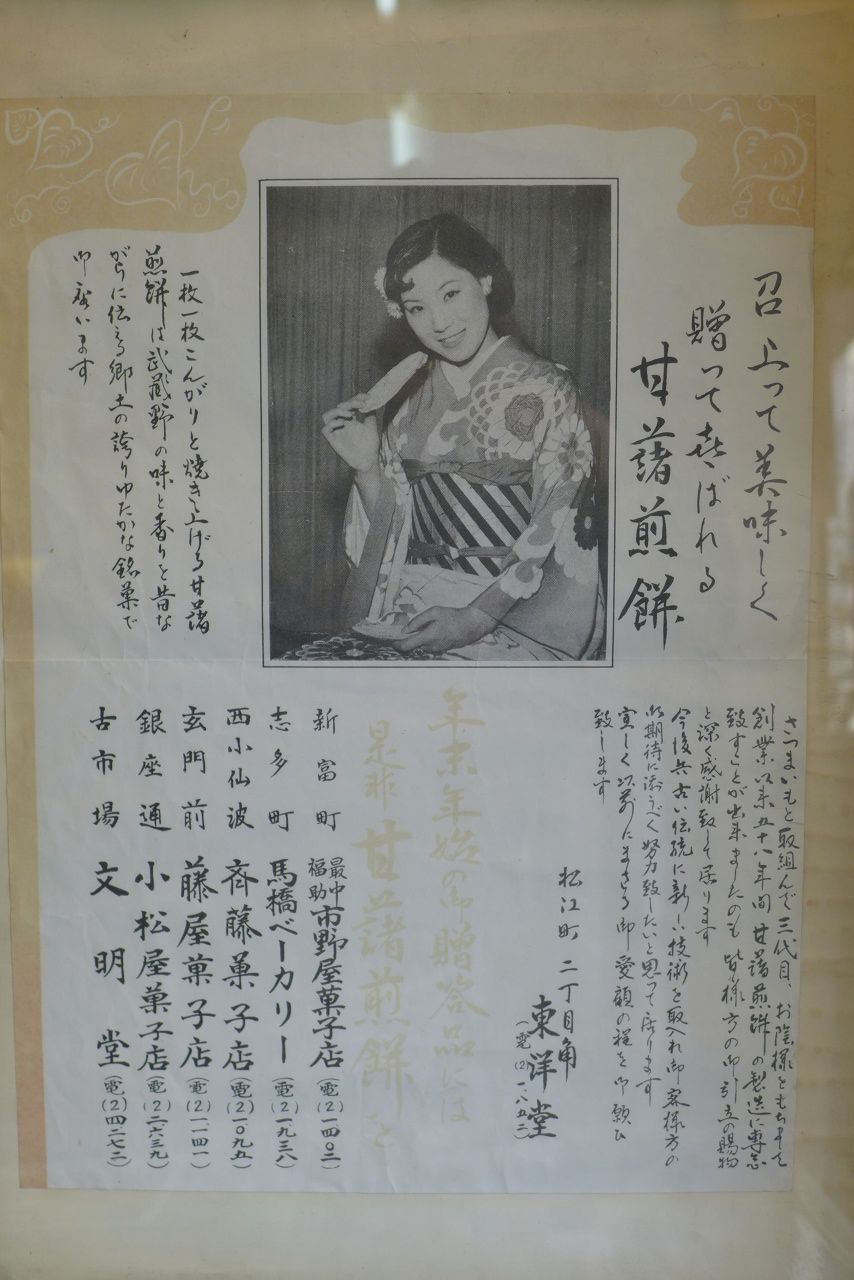 召上って美味しく
贈って喜ばれる
甘藷煎餅
一枚一枚こんがりと焼き上げる甘藷
煎餅は武蔵野の味と香りを昔な
がらに伝える郷土の誇りゆたかな銘菓で
御座います
さつまいもと取組んで三代目、お陰様をもちまして
創業以来五十八年間甘藷煎餅の製造に専念
致すことが出来ましたのも皆様方の御引立の賜物
と深く感謝致して居ります
今後共古い伝統に新しい技術を取入れ御客様方の
御期待に添うべく努力致したいと思って居ります
宜しく以前にまさる御愛顧の程を御願ひ
致します
松江町二丁目角
東洋堂
(電(2)一、八五二)
年末年始の御贈答品には
是非甘藷煎餅を
新富町 最中福助 市野屋菓子店(電(2)一四〇二)
志多町 馬橋ベーカリー(電(2)一九三八)
西小仙波 斉藤菓子店(電(2)一〇九五)
玄門前 藤屋菓子店(電(2)一一四一)
銀座通 小松屋菓子店(電(2)二六三九)
古市場 文明堂(電(2)四二七二)